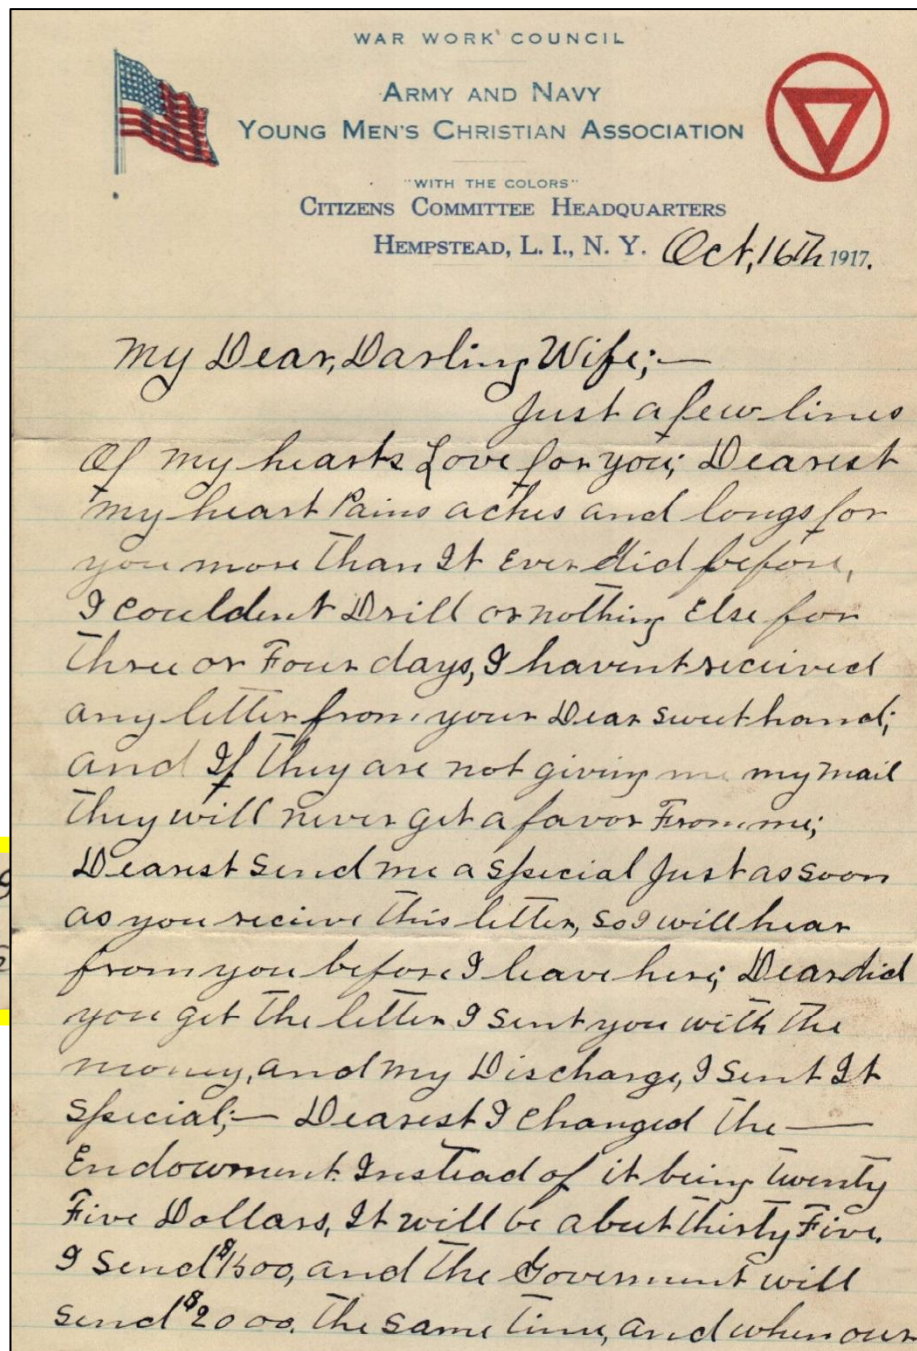 WAR WORK COUNCIL
ARMY AND NAVY
YOUNG MEN'S CHRISTIAN ASSOCIATION
"WITH THE COLORS"
CITIZENS COMMITTEE HEADQUARTERS
HEMPSTEAD, L. I., N. Y. Oct, 16th 1917.
My Dear, Darling Wife;—
Just a few lines
Of my hearts Love for you; Dearest
my heart Pains aches and longs for
you more than It Ever did before,
I couldent Drill or nothing Else for
three or Four days, I havent received
any letter from your Dear sweet hand;
and If they are not giving me my mail
they will never get a favor From me;
Dearest send me a special Just as soon
as you recieve this letter, so I will hear
from you before I leave here; Dear did
you get the letter I sent you with the
money, and my Discharge, I sent It
special;— Dearest I changed the —
Endowment. Instead of it being twenty
Five Dollars, It will be abut thirty Five.
I send $1500, and the Goverment will
send $2000. the same time, and when our